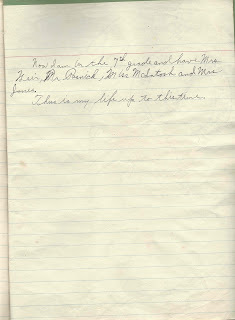 Now I am in the 7th grade and have Mrs.
Weir, Mr. , Miss McIntosh and Mrs
Jones.
This is my life up to this time.